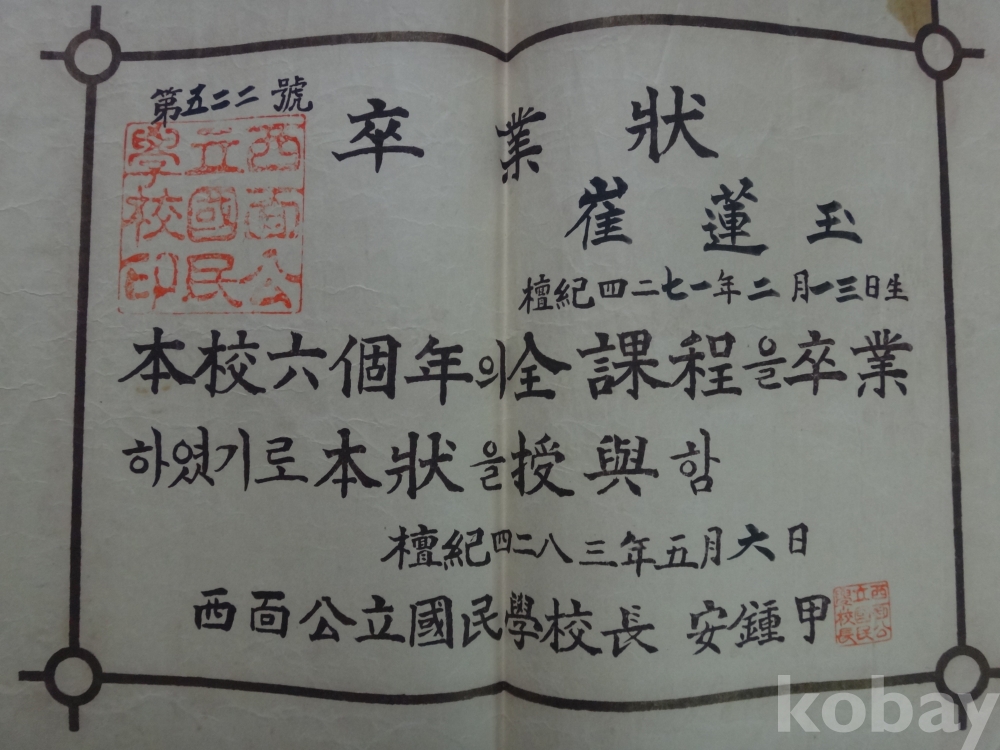 第五二二號
卒業狀
西面公
立國民
學校印
崔蓮玉
檀紀四二七一年二月一三日生
本校六個年의全課程을卒業
하엿기로本狀을授與함
檀紀四二八三年五月六日
西面公立國民學校長 安鍾甲
西面公
立國民
學校長
kobay